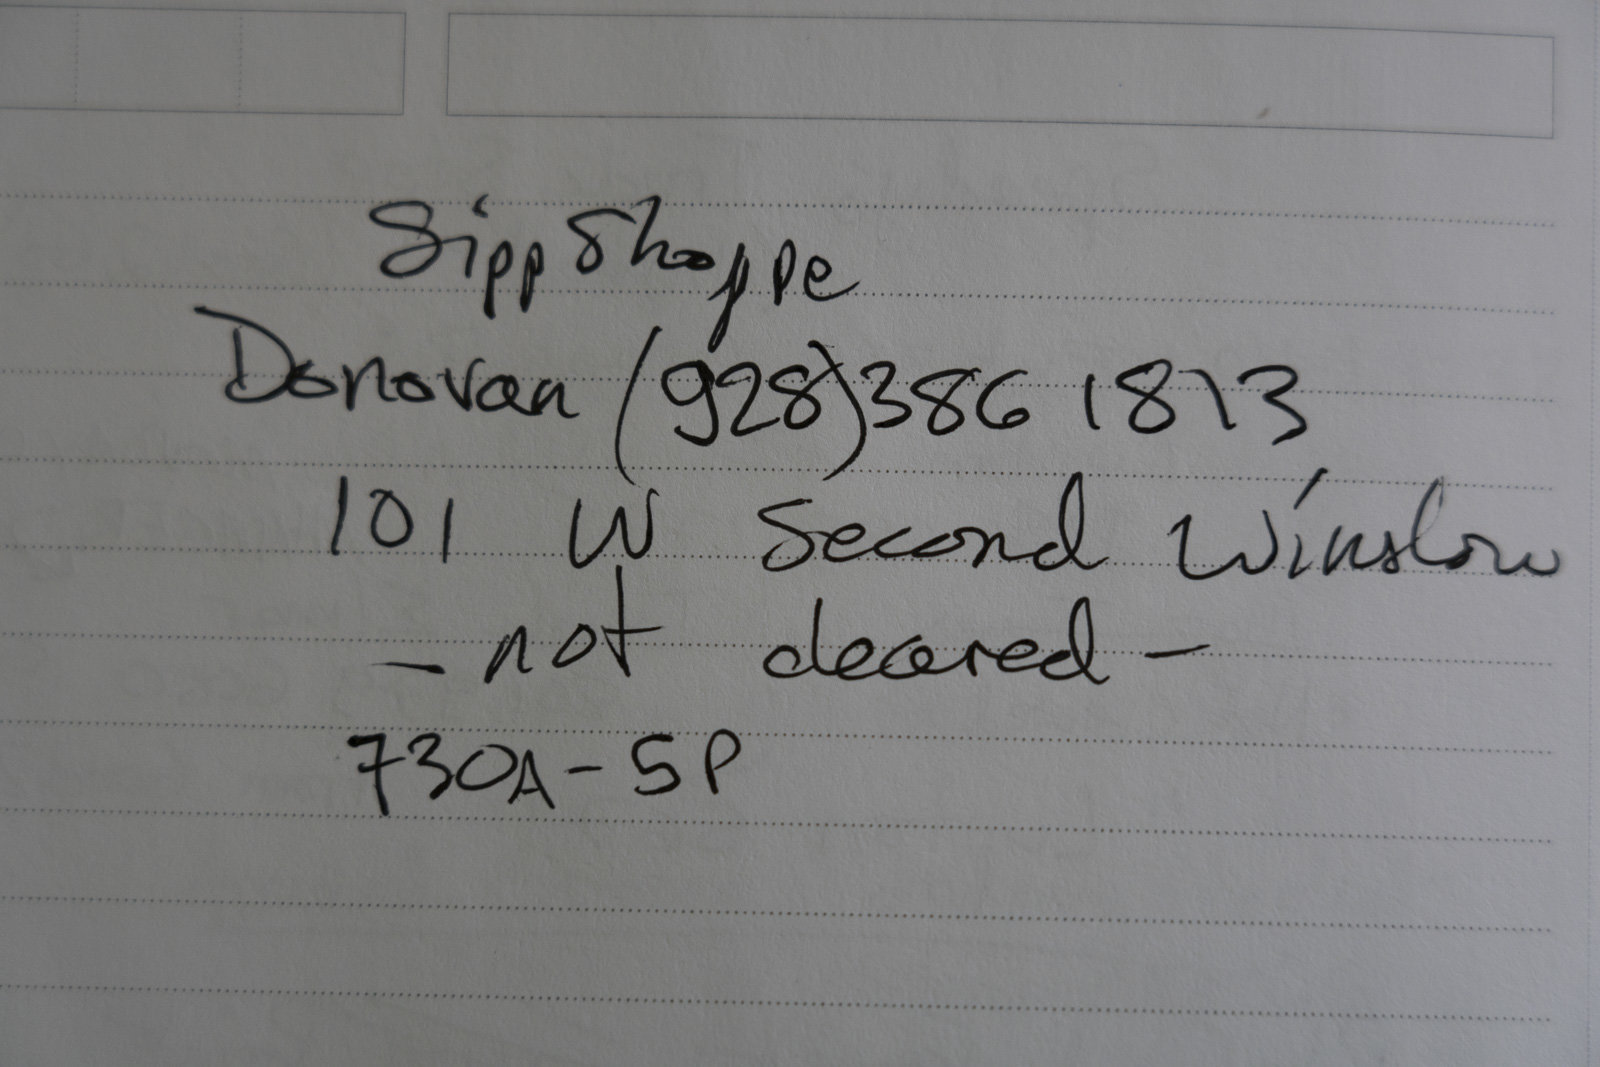 Sipp Shoppe
Donovan (928) 386 1813
101 W Second Winslow
- not cleared -
730A - 5P